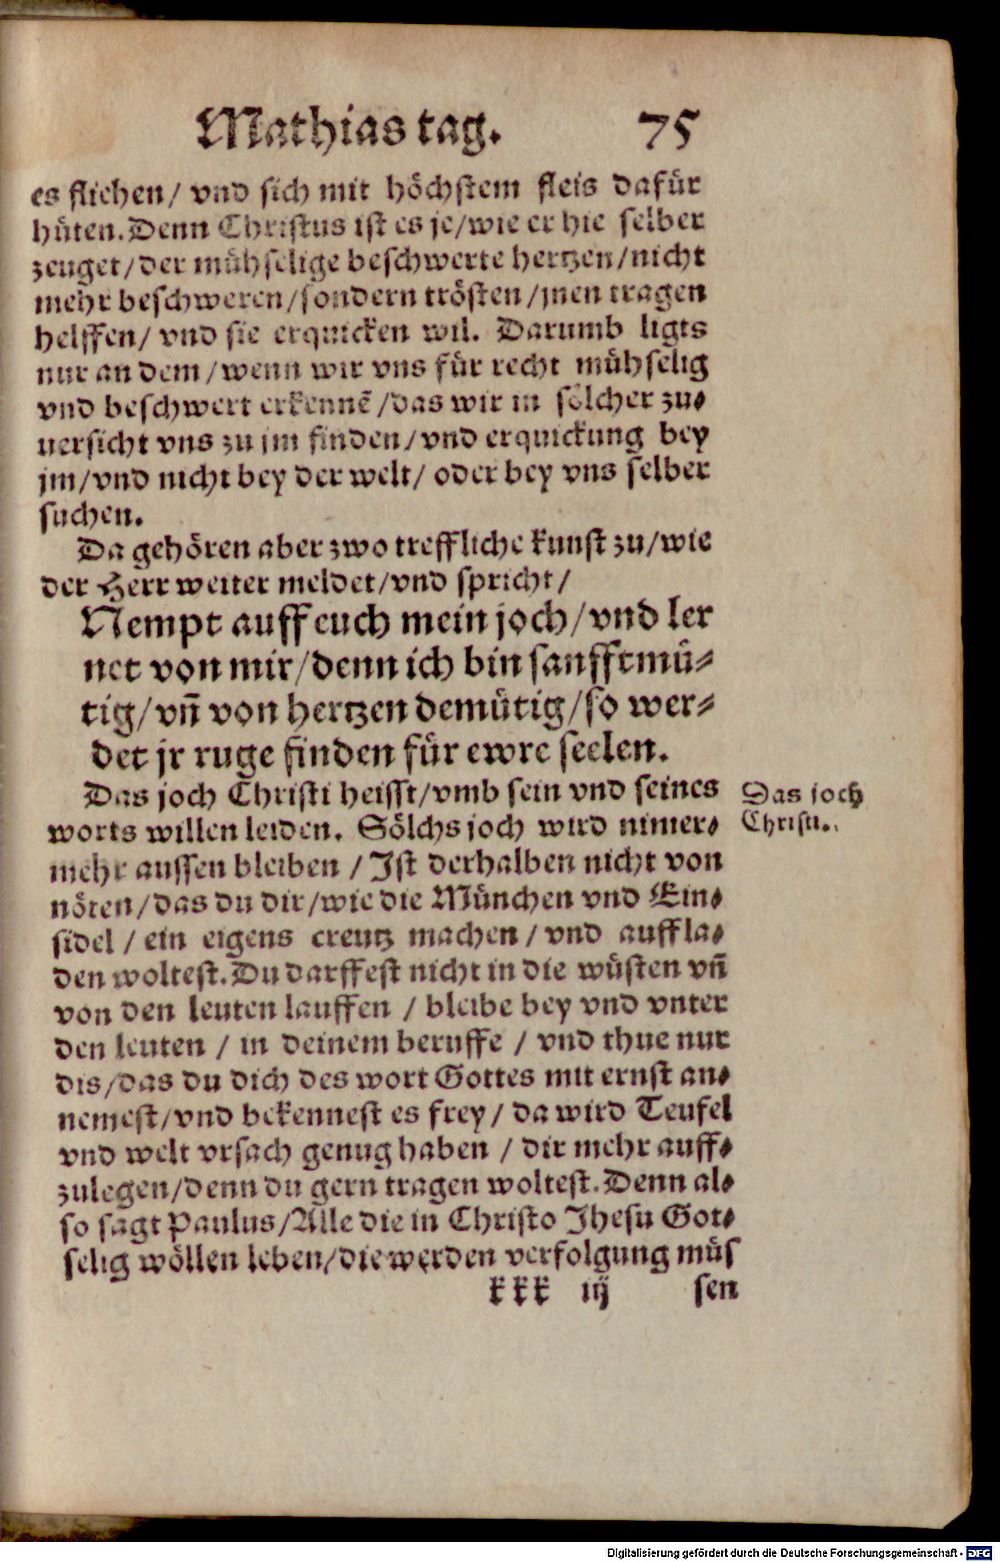 Mathias tag. 75
es fliehen/ vnd sich mit höchstem fleis dafür
hüten. Denn Christus ist es je/wie er hie selber
zeuget/der mühselige beschwerte hertzen/nicht
mehr beschweren/sondern trösten/jnen tragen
helffen/ vnd sie erquicken wil. Darumb ligts
nur an dem/wenn wir vns für recht mühselig
vnd beschwert erkennẽ/das wir in sölcher zu-
uersicht vns zu jm finden/vnd erquickung bey
jm/vnd nicht bey der welt/ oder bey vns selber
suchen.
Da gehören aber zwo treffliche kunst zu/wie
der Herr weiter meldet/vnd spricht/
Nempt auff euch mein joch/vnd ler
net von mir/denn ich bin sanfftmü-
tig/vñ von hertzen demütig/so wer-
det jr ruge finden für ewre seelen.
Das joch Christi heisst/vmb sein vnd seines
worts willen leiden. Sölchs joch wird nimer-
mehr aussen bleiben / Ist derhalben nicht von
nöten/das du dir/wie die München vnd Ein-
sidel / ein eigens creutz machen / vnd auffla-
den woltest. Du darffest nicht in die wüsten vñ
von den leuten lauffen / bleibe bey vnd vnter
den leuten / in deinem beruffe / vnd thue nur
dis/das du dich des wort Gottes mit ernst an-
nemest/vnd bekennest es frey/ da wird Teufel
vnd welt vrsach genug haben / dir mehr auff-
zulegen/denn du gern tragen woltest. Denn al-
so sagt Paulus/Alle die in Christo Jhesu Got-
selig wöllen leben/die werden verfolgung müs
kkk iij sen
Das joch
Christi.
Digitalisierung gefördert durch die Deutsche Forschungsgemeinschaft - DFG